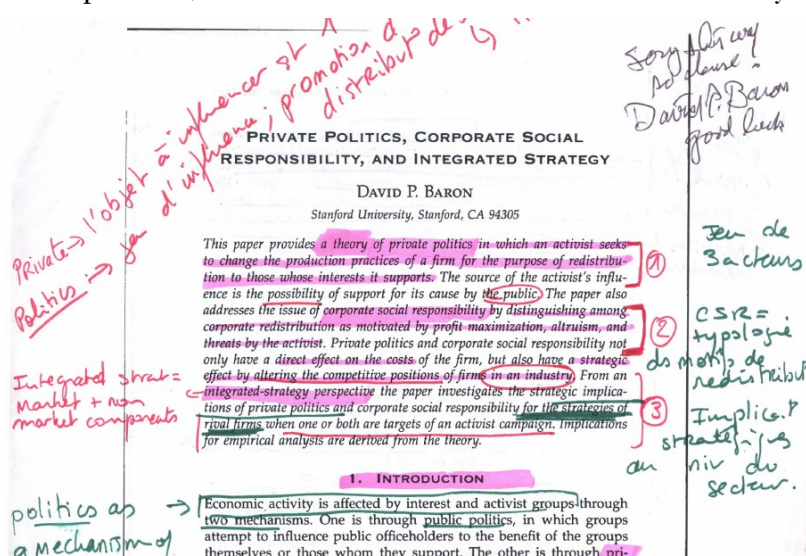 Private → l'objet à influencer st
Politics → jeu d'influence; promotion
distribut° de
so dense.
David P. Baron
good luck
PRIVATE POLITICS, CORPORATE SOCIAL
RESPONSIBILITY, AND INTEGRATED STRATEGY
DAVID P. BARON
Stanford University, Stanford, CA 94305
This paper provides a theory of private politics in which an activist seeks
to change the production practices of a firm for the purpose of redistribu-
tion to those whose interests it supports. The source of the activist's influ-
ence is the possibility of support for its cause by the public. The paper also
addresses the issue of corporate social responsibility by distinguishing among
corporate redistribution as motivated by profit maximization, altruism, and
threats by the activist. Private politics and corporate social responsibility not
only have a direct effect on the costs of the firm, but also have a strategic
effect by altering the competitive positions of firms in an industry. From an
integrated-strategy perspective the paper investigates the strategic implica-
tions of private politics and corporate social responsibility for the strategies of
rival firms when one or both are targets of an activist campaign. Implications
for empirical analysis are derived from the theory.
1
Jeu de
3 acteurs
2
CSR =
typologie
ds motifs de
redistribut
3
Implic.°
stratégiques
au niv du
secteur.
Integrated strat =
Market + non
market components
1. INTRODUCTION
politics as
a mechanism of
Economic activity is affected by interest and activist groups through
two mechanisms. One is through public politics, in which groups
attempt to influence public officeholders to the benefit of the groups
themselves or those whom they support. The other is through pri-